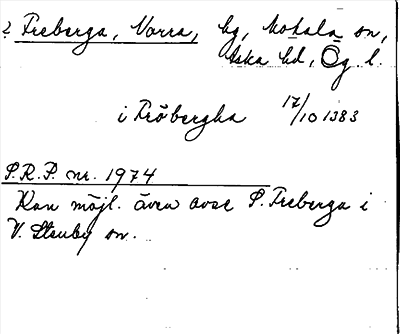 ? Freberga, Norra, by, Motala sn,
Aska hd, Ög. l.
i Fröbergha 17/10 1383
S.R.P. nr. 1974
Kan möjl. även avse S. Freberga i
V. Stenby sn.